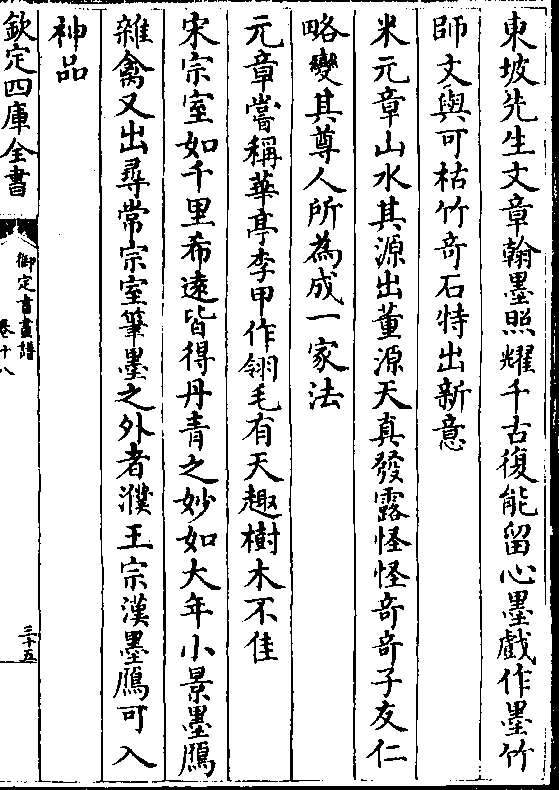 東坡先生文章翰墨照耀千古復能留心墨戲作墨竹
師文與可枯竹竒石特出新意
米元章山水其源出董源天真發露怪怪竒竒子友仁
略變其尊人所為成一家法
元章嘗稱華亭李甲作翎毛有天趣樹木不佳
宋宗室如千里希逺皆得丹青之妙如大年小景墨鴈
雜禽又出尋常宗室筆墨之外者濮王宗漢墨鴈可入
神品
欽定四庫全書
御定書畫譜
卷十八
三十五